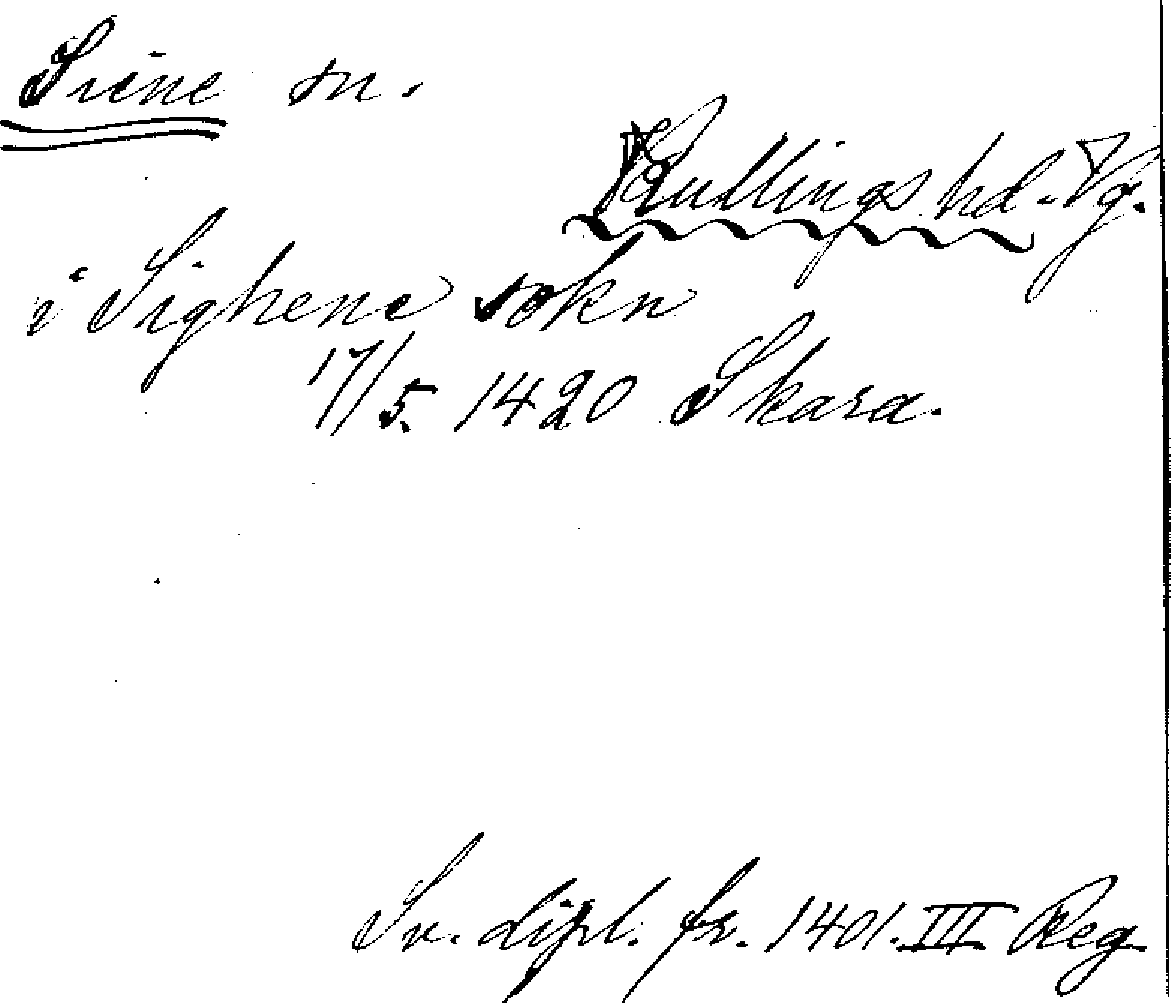 Siene sn.
Kullings hd. Vg.
i Sighene sokn
17/5. 1420 Skara.
Sv. dipl. fr. 1401. III Reg